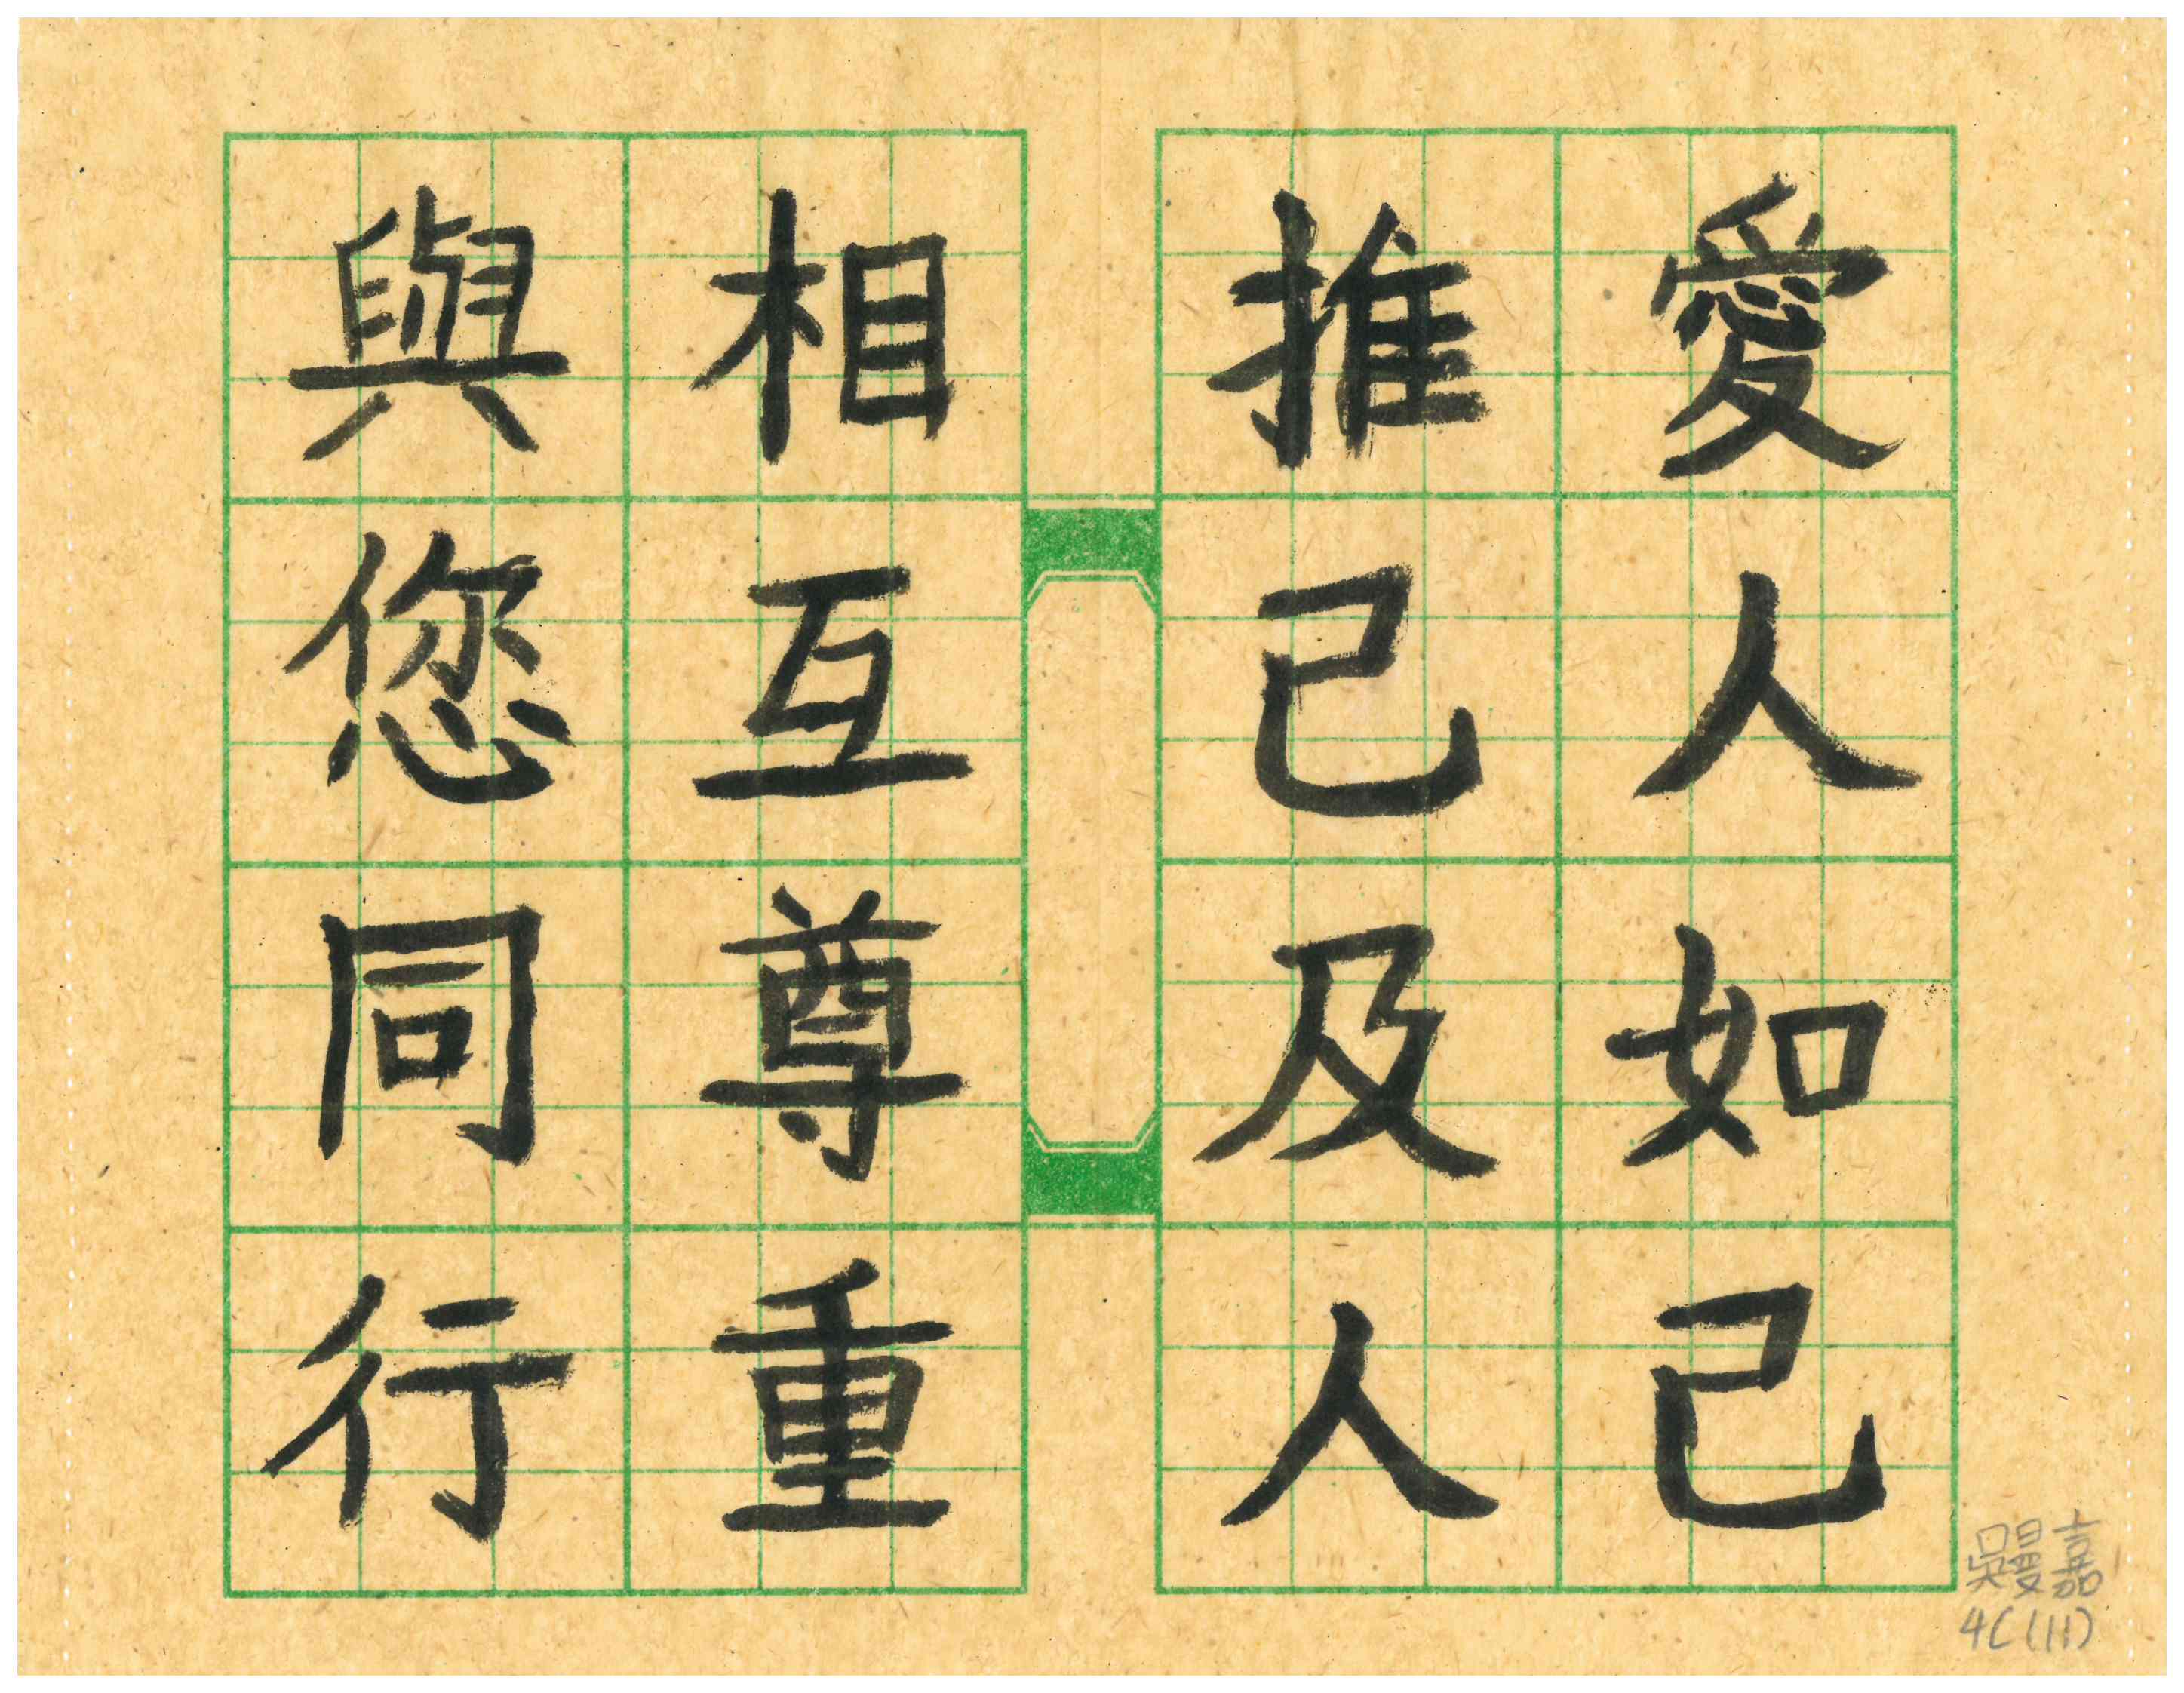 愛人如己
推己及人
相互尊重
與您同行
吳曼嘉
4C(11)